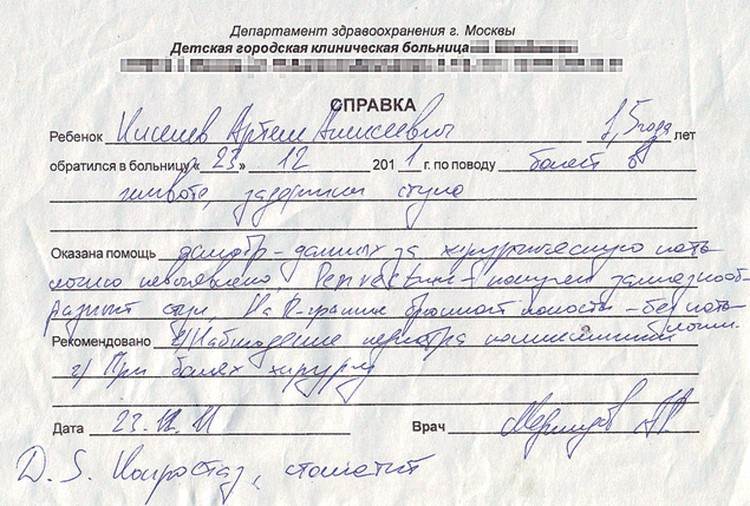 Департамент здравоохранения г. Москвы
Детская городская клиническая больница
СПРАВКА
Ребенок Киселев Артем Алексеевич 1,5 года лет
обратился в больницу «23» 12 2011 г. по поводу болей в
животе, задержки стула
Оказана помощь данных за хирургическую пато-
логию не выявлено, Per rectum - получен замазкооб-
разный стул, На R-грамме брюшной полости - без пато-
логии.
Рекомендовано 1) Наблюдение педиатра поликлиники
2) При болях хирургу
Дата 23.12.11 Врач
D.S. Копростаз, стоматит